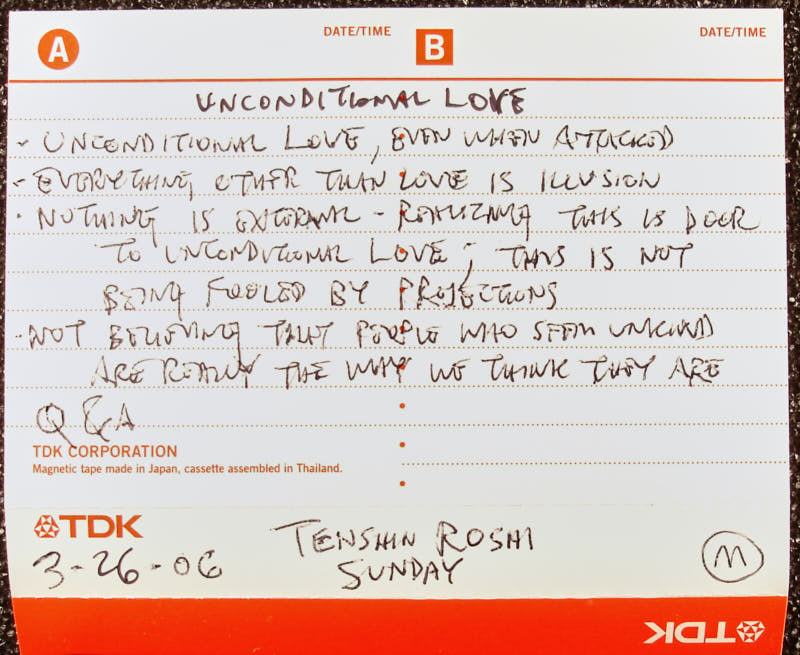 A DATE/TIME B DATE/TIME
UNCONDITIONAL LOVE
- UNCONDITIONAL LOVE, EVEN WHEN ATTACKED
- EVERYTHING OTHER THAN LOVE IS ILLUSION
· NOTHING IS EXTERNAL - REALIZING THIS IS DOOR
TO UNCONDITIONAL LOVE; THIS IS NOT
BEING FOOLED BY PROJECTIONS
· NOT BELIEVING THAT PEOPLE WHO SEEM UNKIND
ARE REALLY THE WAY WE THINK THEY ARE
Q & A
TDK CORPORATION
Magnetic tape made in Japan, cassette assembled in Thailand.
TDK
TENSHIN ROSHI
3-26-06 SUNDAY
M
TDK